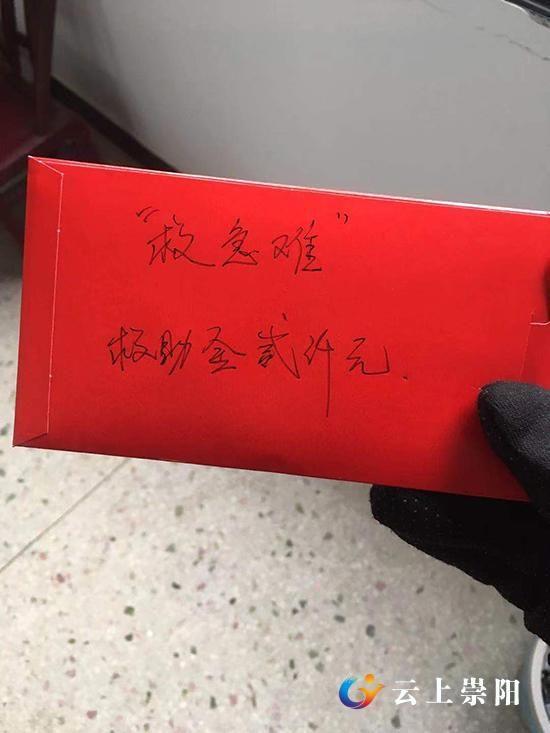 “救急难”
救助金贰仟元.
云上崇阳